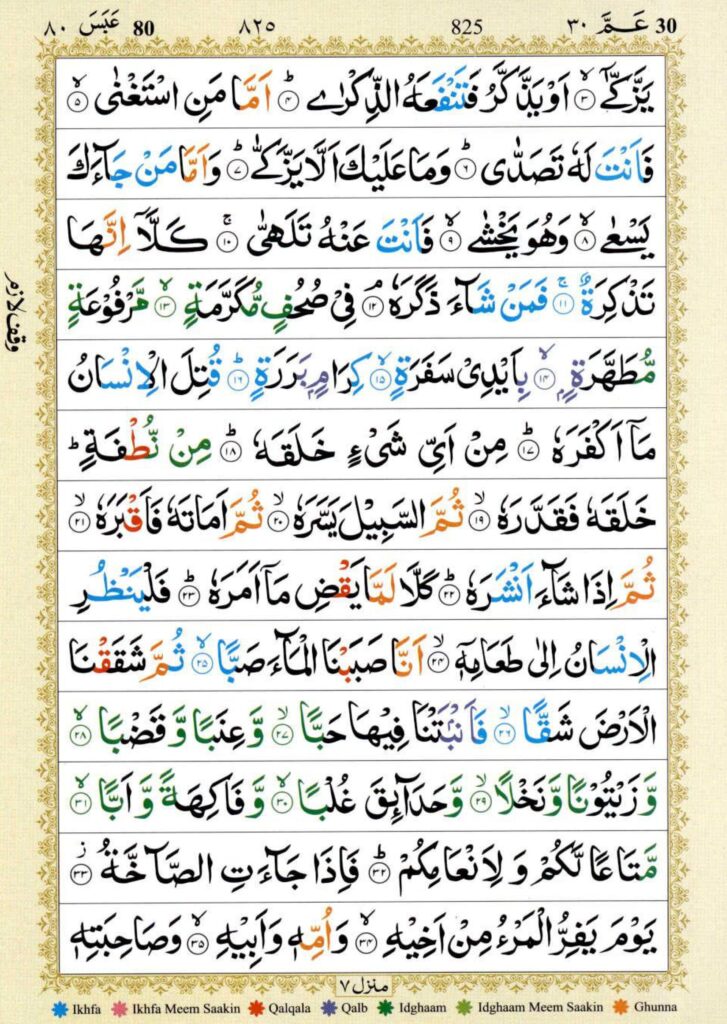 30 عَمَّ ٣٠ 825 ٨٢٥ 80 عَبَسَ ٨٠
يَزَّكّٰٓى ۙ‏﴿۳﴾ اَوْ يَذَّكَّرُ فَتَنْفَعَهُ الذِّكْرٰى ؕ‏﴿۴﴾ اَمَّا مَنِ اسْتَغْنٰى ۙ‏﴿۵﴾
فَاَنْتَ لَهٗ تَصَدّٰى ؕ‏﴿۶﴾ وَمَا عَلَيْكَ اَلَّا يَزَّكّٰى ؕ‏﴿۷﴾ وَاَمَّا مَنْ جَآءَكَ
يَسْعٰى ۙ‏﴿۸﴾ وَهُوَ يَخْشٰى ۙ‏﴿۹﴾ فَاَنْتَ عَنْهُ تَلَهّٰى ۚ‏﴿۱۰﴾ كَلَّاۤ اِنَّهَا
تَذْكِرَةٌ ۚ‏﴿۱۱﴾ فَمَنْ شَآءَ ذَكَرَهٗ ۘ‏﴿۱۲﴾ فِىْ صُحُفٍ مُّكَرَّمَةٍ ۙ‏﴿۱۳﴾ مَّرْفُوْعَةٍ
وقف لازم
مُّطَهَّرَةٍۭ ۙ‏﴿۱۴﴾ بِاَيْدِىْ سَفَرَةٍ ۙ‏﴿۱۵﴾ كِرَامٍۭ بَرَرَةٍ ؕ‏﴿۱۶﴾ قُتِلَ الْاِنْسَانُ
مَاۤ اَكْفَرَهٗ ؕ‏﴿۱۷﴾ مِنْ اَىِّ شَىْءٍ خَلَقَهٗ ؕ‏﴿۱۸﴾ مِنْ نُّطْفَةٍ ؕ
خَلَقَهٗ فَقَدَّرَهٗ ۙ‏﴿۱۹﴾ ثُمَّ السَّبِيْلَ يَسَّرَهٗ ۙ‏﴿۲۰﴾ ثُمَّ اَمَاتَهٗ فَاَقْبَرَهٗ ۙ‏﴿۲۱﴾
ثُمَّ اِذَا شَآءَ اَنْشَرَهٗ ؕ‏﴿۲۲﴾ كَلَّا لَمَّا يَقْضِ مَاۤ اَمَرَهٗ ؕ‏﴿۲۳﴾ فَلْيَنْظُرِ
الْاِنْسَانُ اِلٰى طَعَامِهٖۤ ۙ‏﴿۲۴﴾ اَنَّا صَبَبْنَا الْمَآءَ صَبًّا ۙ‏﴿۲۵﴾ ثُمَّ شَقَقْنَا
الْاَرْضَ شَقًّا ۙ‏﴿۲۶﴾ فَاَنْۢبَتْنَا فِيْهَا حَبًّا ۙ‏﴿۲۷﴾ وَّعِنَبًا وَّقَضْبًا ۙ‏﴿۲۸﴾
وَّزَيْتُوْنًا وَّنَخْلًا ۙ‏﴿۲۹﴾ وَّحَدَآئِقَ غُلْبًا ۙ‏﴿۳۰﴾ وَّفَاكِهَةً وَّاَبًّا ۙ‏﴿۳۱﴾
مَّتَاعًا لَّكُمْ وَلِاَنْعَامِكُمْ ؕ‏﴿۳۲﴾ فَاِذَا جَآءَتِ الصَّآخَّةُ ۚ‏﴿۳۳﴾
يَوْمَ يَفِرُّ الْمَرْءُ مِنْ اَخِيْهِ ۙ‏﴿۳۴﴾ وَاُمِّهٖ وَاَبِيْهِ ۙ‏﴿۳۵﴾ وَصَاحِبَتِهٖ
منزل ٧
Ikhfa Ikhfa Meem Saakin Qalqala Qalb Idghaam Idghaam Meem Saakin Ghunna